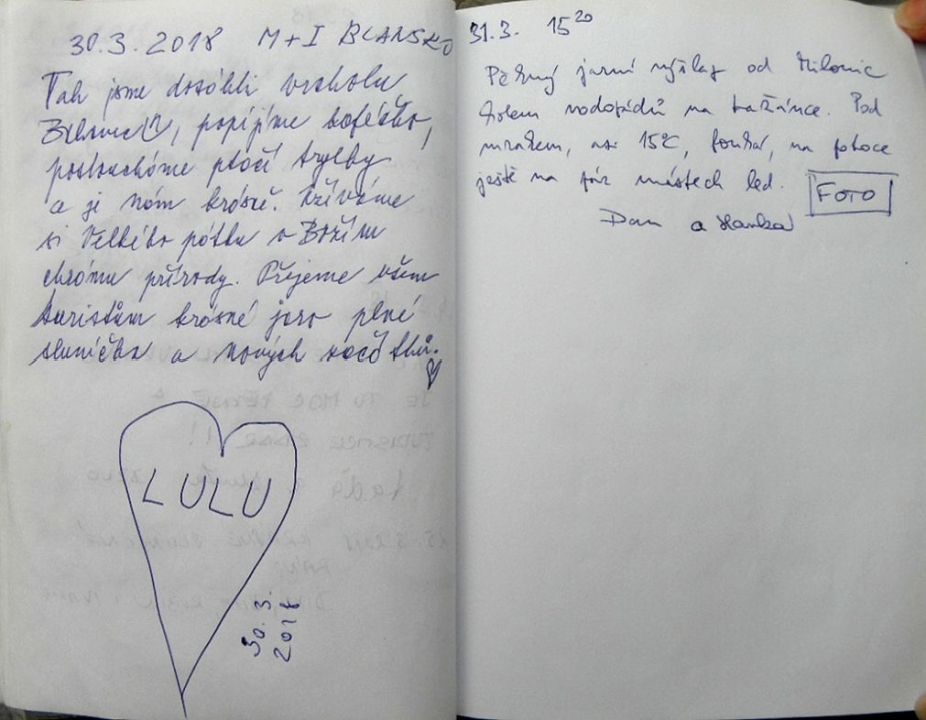 30.3.2018 M+I BLANSKO
Tak jsme dosáhli vrcholu
popíjíme kafíčko,
posloucháme ptačí trylky
a je nám krásně. Užíváme
si Velkého pátku v Božím
chrámu přírody. Přejeme všem
turistům krásné jaro plné
sluníčka a nových zážitků.
LULU
30.3.
2018
31.3. 15 20
Pěkný jarní výšlap od Milonic
kolem vodopádů na Pod
mrakem, asi 15°C, fouká, na potoce
ještě na pár místech led. FOTO
Dan a Hanka